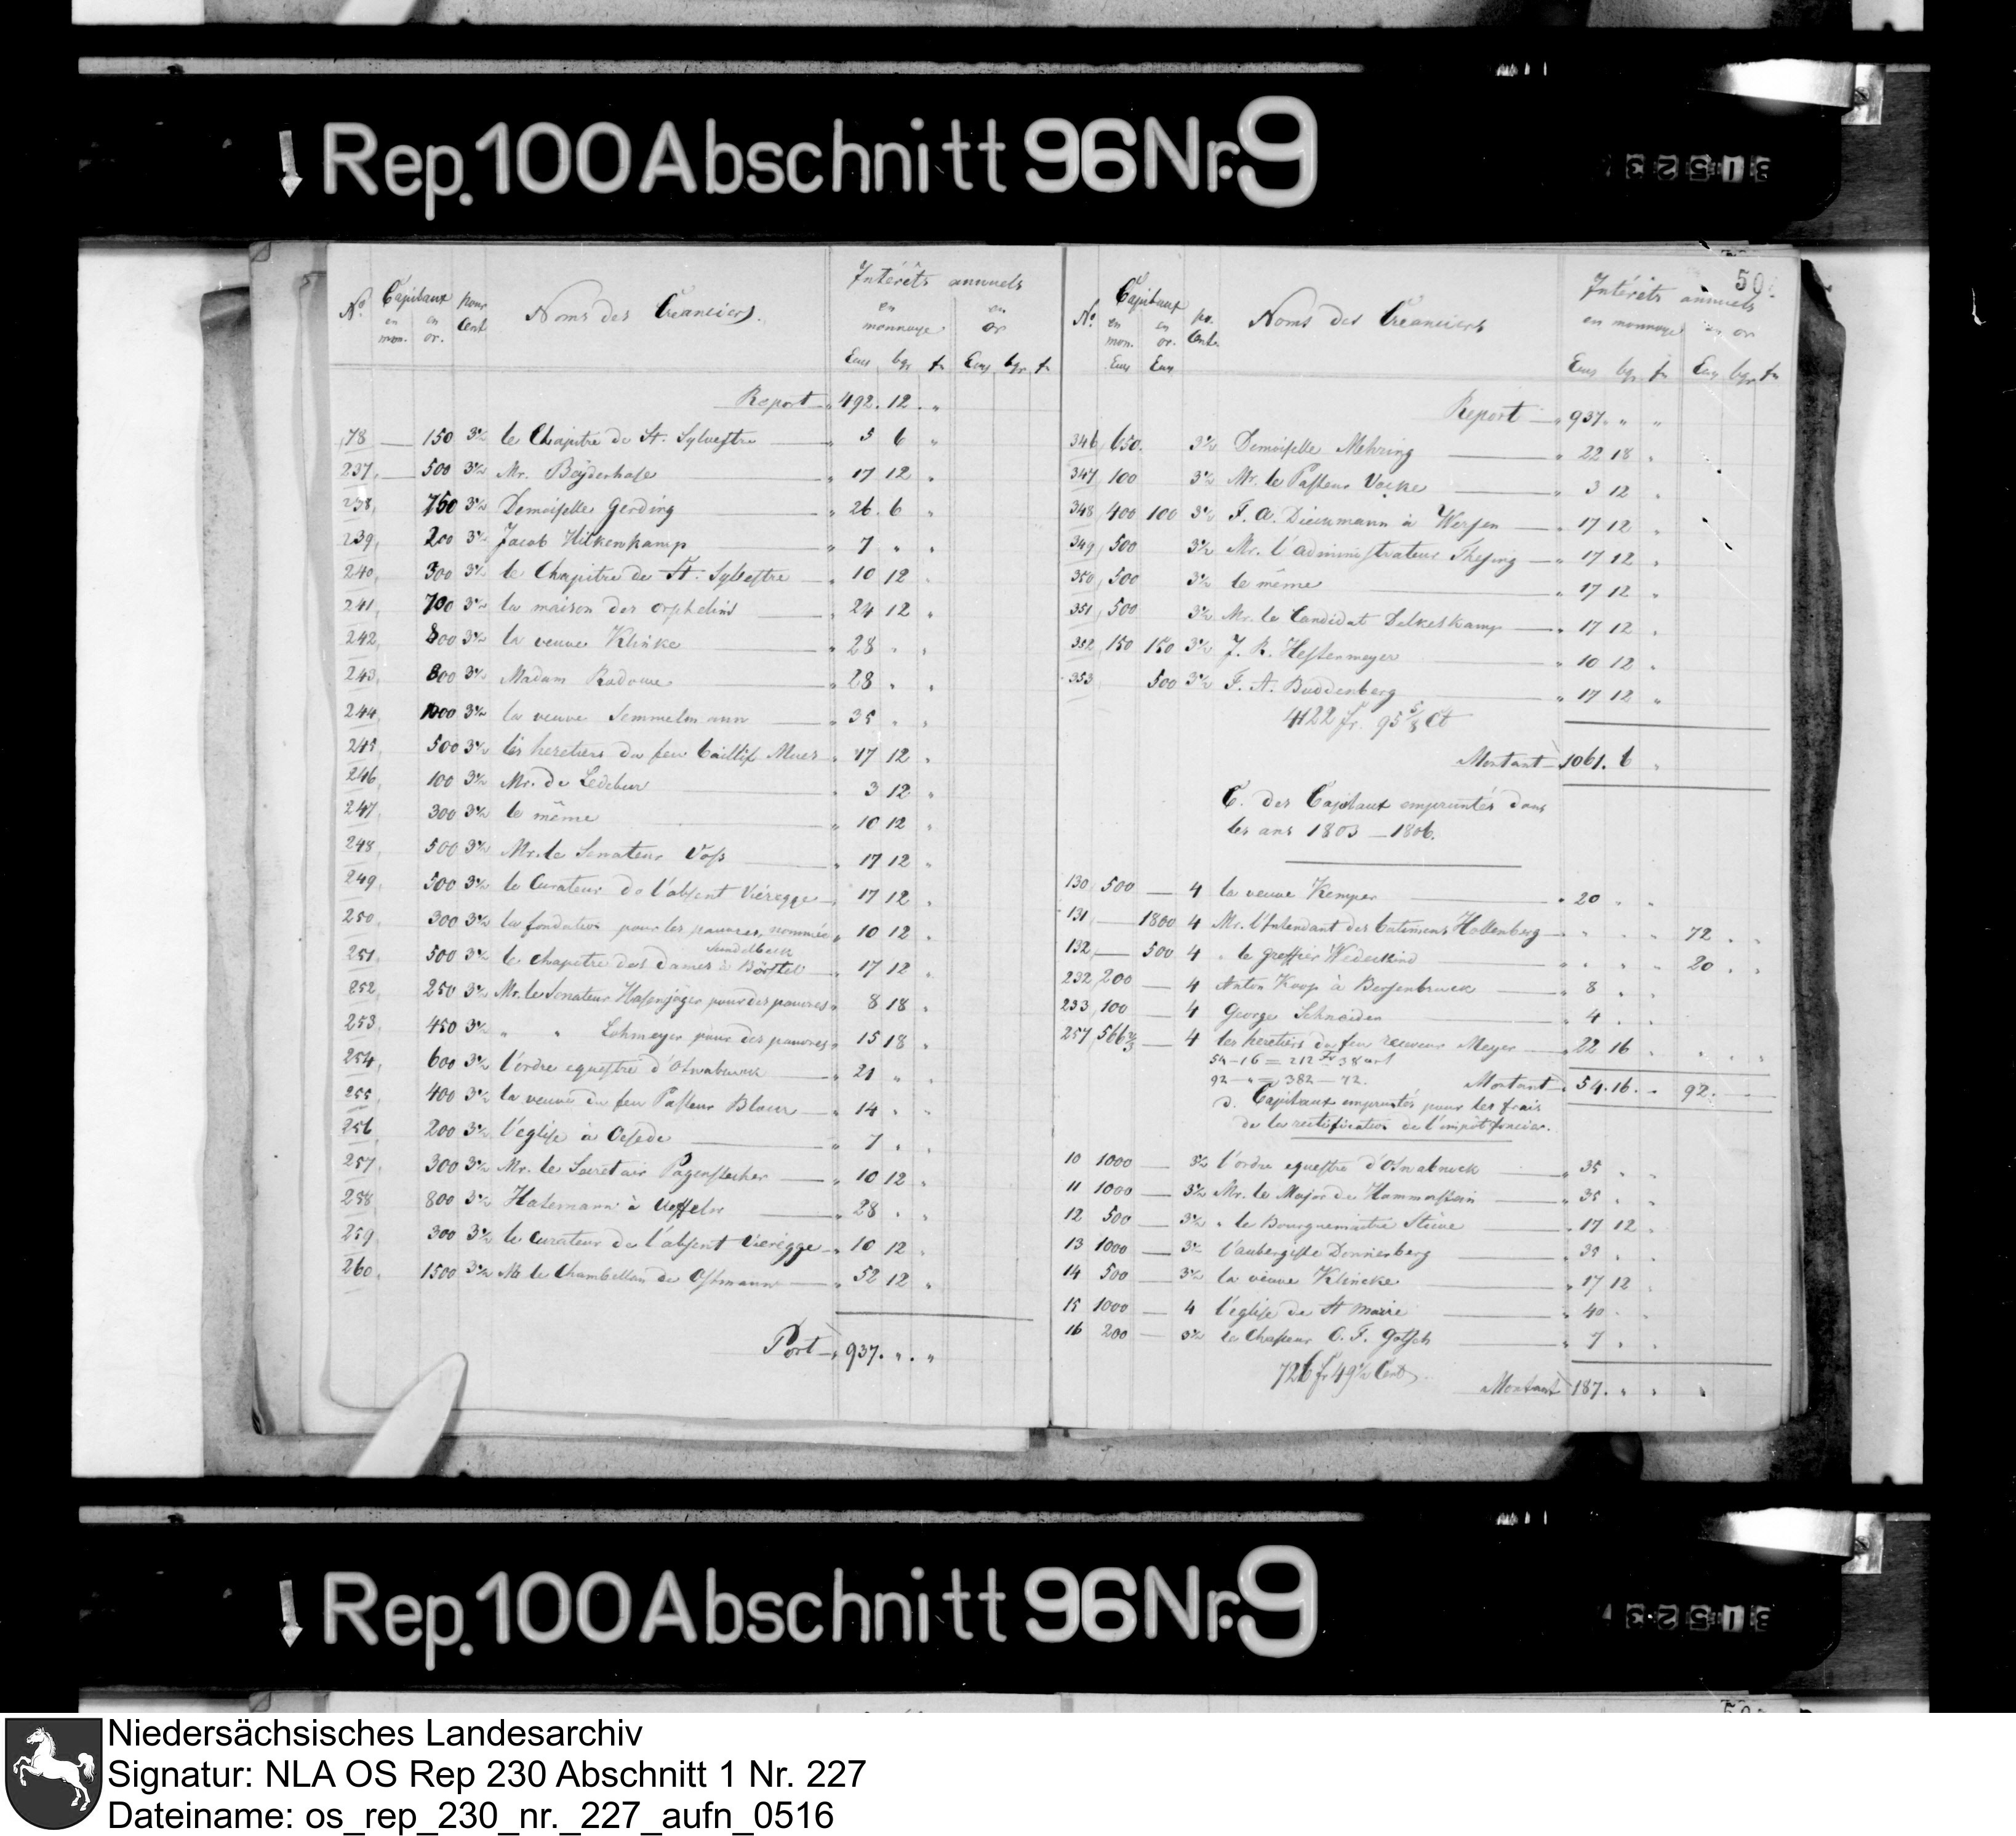 Rep. 100 Abschnitt 96 Nr. 9
No. Capitaux pour Cent Noms des Créanciers. Intérêts annuels
en mon. en or. en monnaye en or
Ecus bgr fn Ecus bgr fn
Report 492. 12. "
178 — 150 3½ le Chapitre de St. Sylvestre " 5 6 "
237, — 500 3½ Mr. Beyderhase " 17 12 "
238, 750 3½ Demoiselle Gerding " 26. 6 "
239, 200 3½ Jacob Hilkenkamp " 7 " "
240, 300 3½ le Chapitre de St. Sylvestre " 10 12 "
241, 700 3½ la maison des orphelins " 24 12 "
242, 800 3½ la veuve Klinke " 28 " "
243, 800 3½ Madam Radowe " 28 " "
244 1000 3½ la veuve Semmelmann " 35 " "
245 500 3½ les heretiers du feu baillif " 17 12 "
246, 100 3½ Mr. de Ledebur " 3 12 "
247, 300 3½ le même " 10 12 "
248, 500 3½ Mr. le Senateur Voss " 17 12 "
249, 500 3½ le Curateur de l'absent Vieregge " 17 12 "
250, 300 3½ la fondation pour les pauvres, nommée " 10 12 "
Sundelbeck
251, 500 3½ le chapitre des dames à Börstel " 17 12 "
252 250 3½ Mr. le Senateur Hasenjäger pour des pauvres " 8 18 "
253, 450 3½ " " Lohmeyer pour des pauvres " 15 18 "
254, 600 3½ l'ordre equestre d'Osnabruck " 21 " "
255 400 3½ la veuve du feu Pasteur " 14 " "
256 200 3½ l'eglise à Oesede " 7 " "
257 300 3½ Mr. le Secretair Pagenstecher " 10 12 "
258 800 3½ Hasemann à Ueffeln " 28 " "
259 300 3½ le Curateur de l'absent Vieregge " 10 12 "
260, 1500 3½ Mr le Chambellan de Ostmann " 52 12 "
Port " 937. " . "
50
No. Capitaux po. Cent. Noms des Créanciers Intérêts annuels
en mon. en or. en monnaye en or
Ecus Ecus Ecus bgr fn Ecus bgr fn
Report " 937. " "
346, 650. 3½ Demoiselle Mehring " 22 18 "
347 100 3½ Mr. le Pasteur Vocke " 3 12 "
348, 400 100 3½ F. A. Dieckmann à Wersen " 17 12 "
349, 500 3½ Mr. l'administrateur Thesing " 17 12 "
350, 500 3½ le même " 17 12 "
351, 500 3½ Mr. le Candidat Delkeskamp " 17 12 "
352, 150 150 3½ J. R. Hestermeyer " 10 12 "
353 500 3½ F. A. Buddenberg " 17 12 "
4122 fr. 95 5/8 Ct
Montant 1061. 6 "
C. des Capitaux empruntés dans
les ans 1803 — 1806.
130 500 — 4 la veuve Kemper " 20 " "
131 — 1800 4 Mr. l'Intendant des batimens Hollenberg " " " " 72 " "
132, — 500 4 " le greffier Wedekind " " " " 20 " "
232 200 — 4 Anton Koop à Bersenbruck " 8 " "
233, 100 — 4 George Schneider " 4 " "
257, 566⅔ — 4 les heretiers du feu receveur Meyer " 22 16 " " " "
54-16 = 212 Fr 38 cent
92 — " = 382 — 72. Montant " 54. 16. " 92. —
D. Capitaux empruntés pour les frais
de la rectification de l'impôt foncier.
10 1000 — 3½ l'ordre equestre d'Osnabruck " 35 " "
11 1000 — 3½ Mr. le Major de Hammerstein " 35 " "
12 500 — 3½ " le Bourguemaitre Stüve " 17 12 "
13 1000 — 3½ l'aubergiste Donnerberg " 35 " "
14 500 — 3½ la veuve Klincke " 17 12 "
15 1000 — 4 l'eglise de St Marie " 40 " "
16 200 — 3½ le Chasseur C. F. Gotsch " 7 " "
726 fr 49½ Cent
Montant 187. " " "
Rep. 100 Abschnitt 96 Nr. 9
Niedersächsisches Landesarchiv
Signatur: NLA OS Rep 230 Abschnitt 1 Nr. 227
Dateiname: os_rep_230_nr._227_aufn_0516